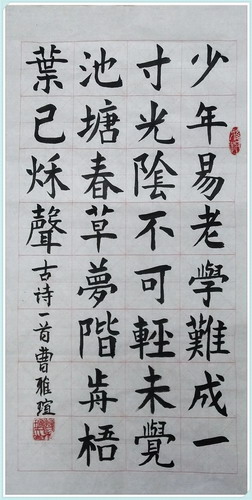 少年易老學難成一
寸光陰不可輕未覺
池塘春草夢階前梧
葉已秌聲
古诗一首曹雅瑄